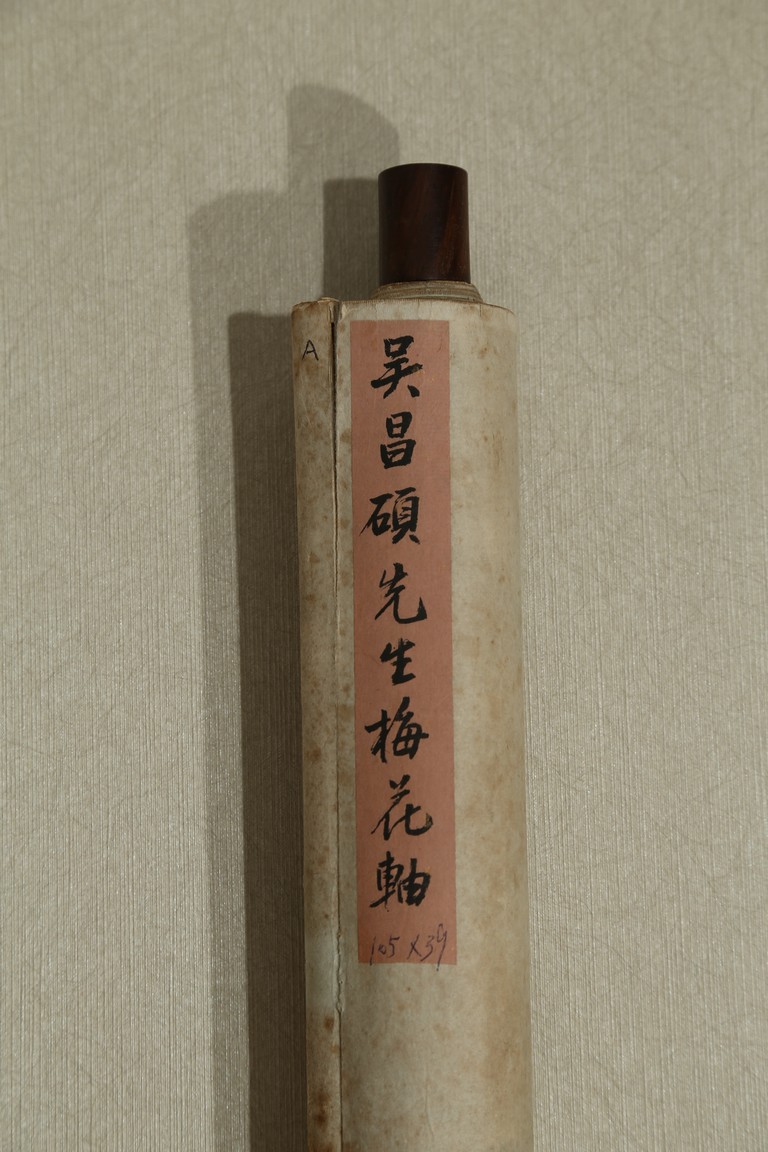 A
吴昌碩先生梅花軸
105 X 39